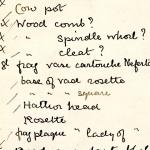 x Cow pot
x Wood comb?
x " spindle whorl?
x " cleat?
st frag vase cartouche Nefert
base of vase rosette
" " " square
Hathor head
Rosette
frag plaque "lady of"